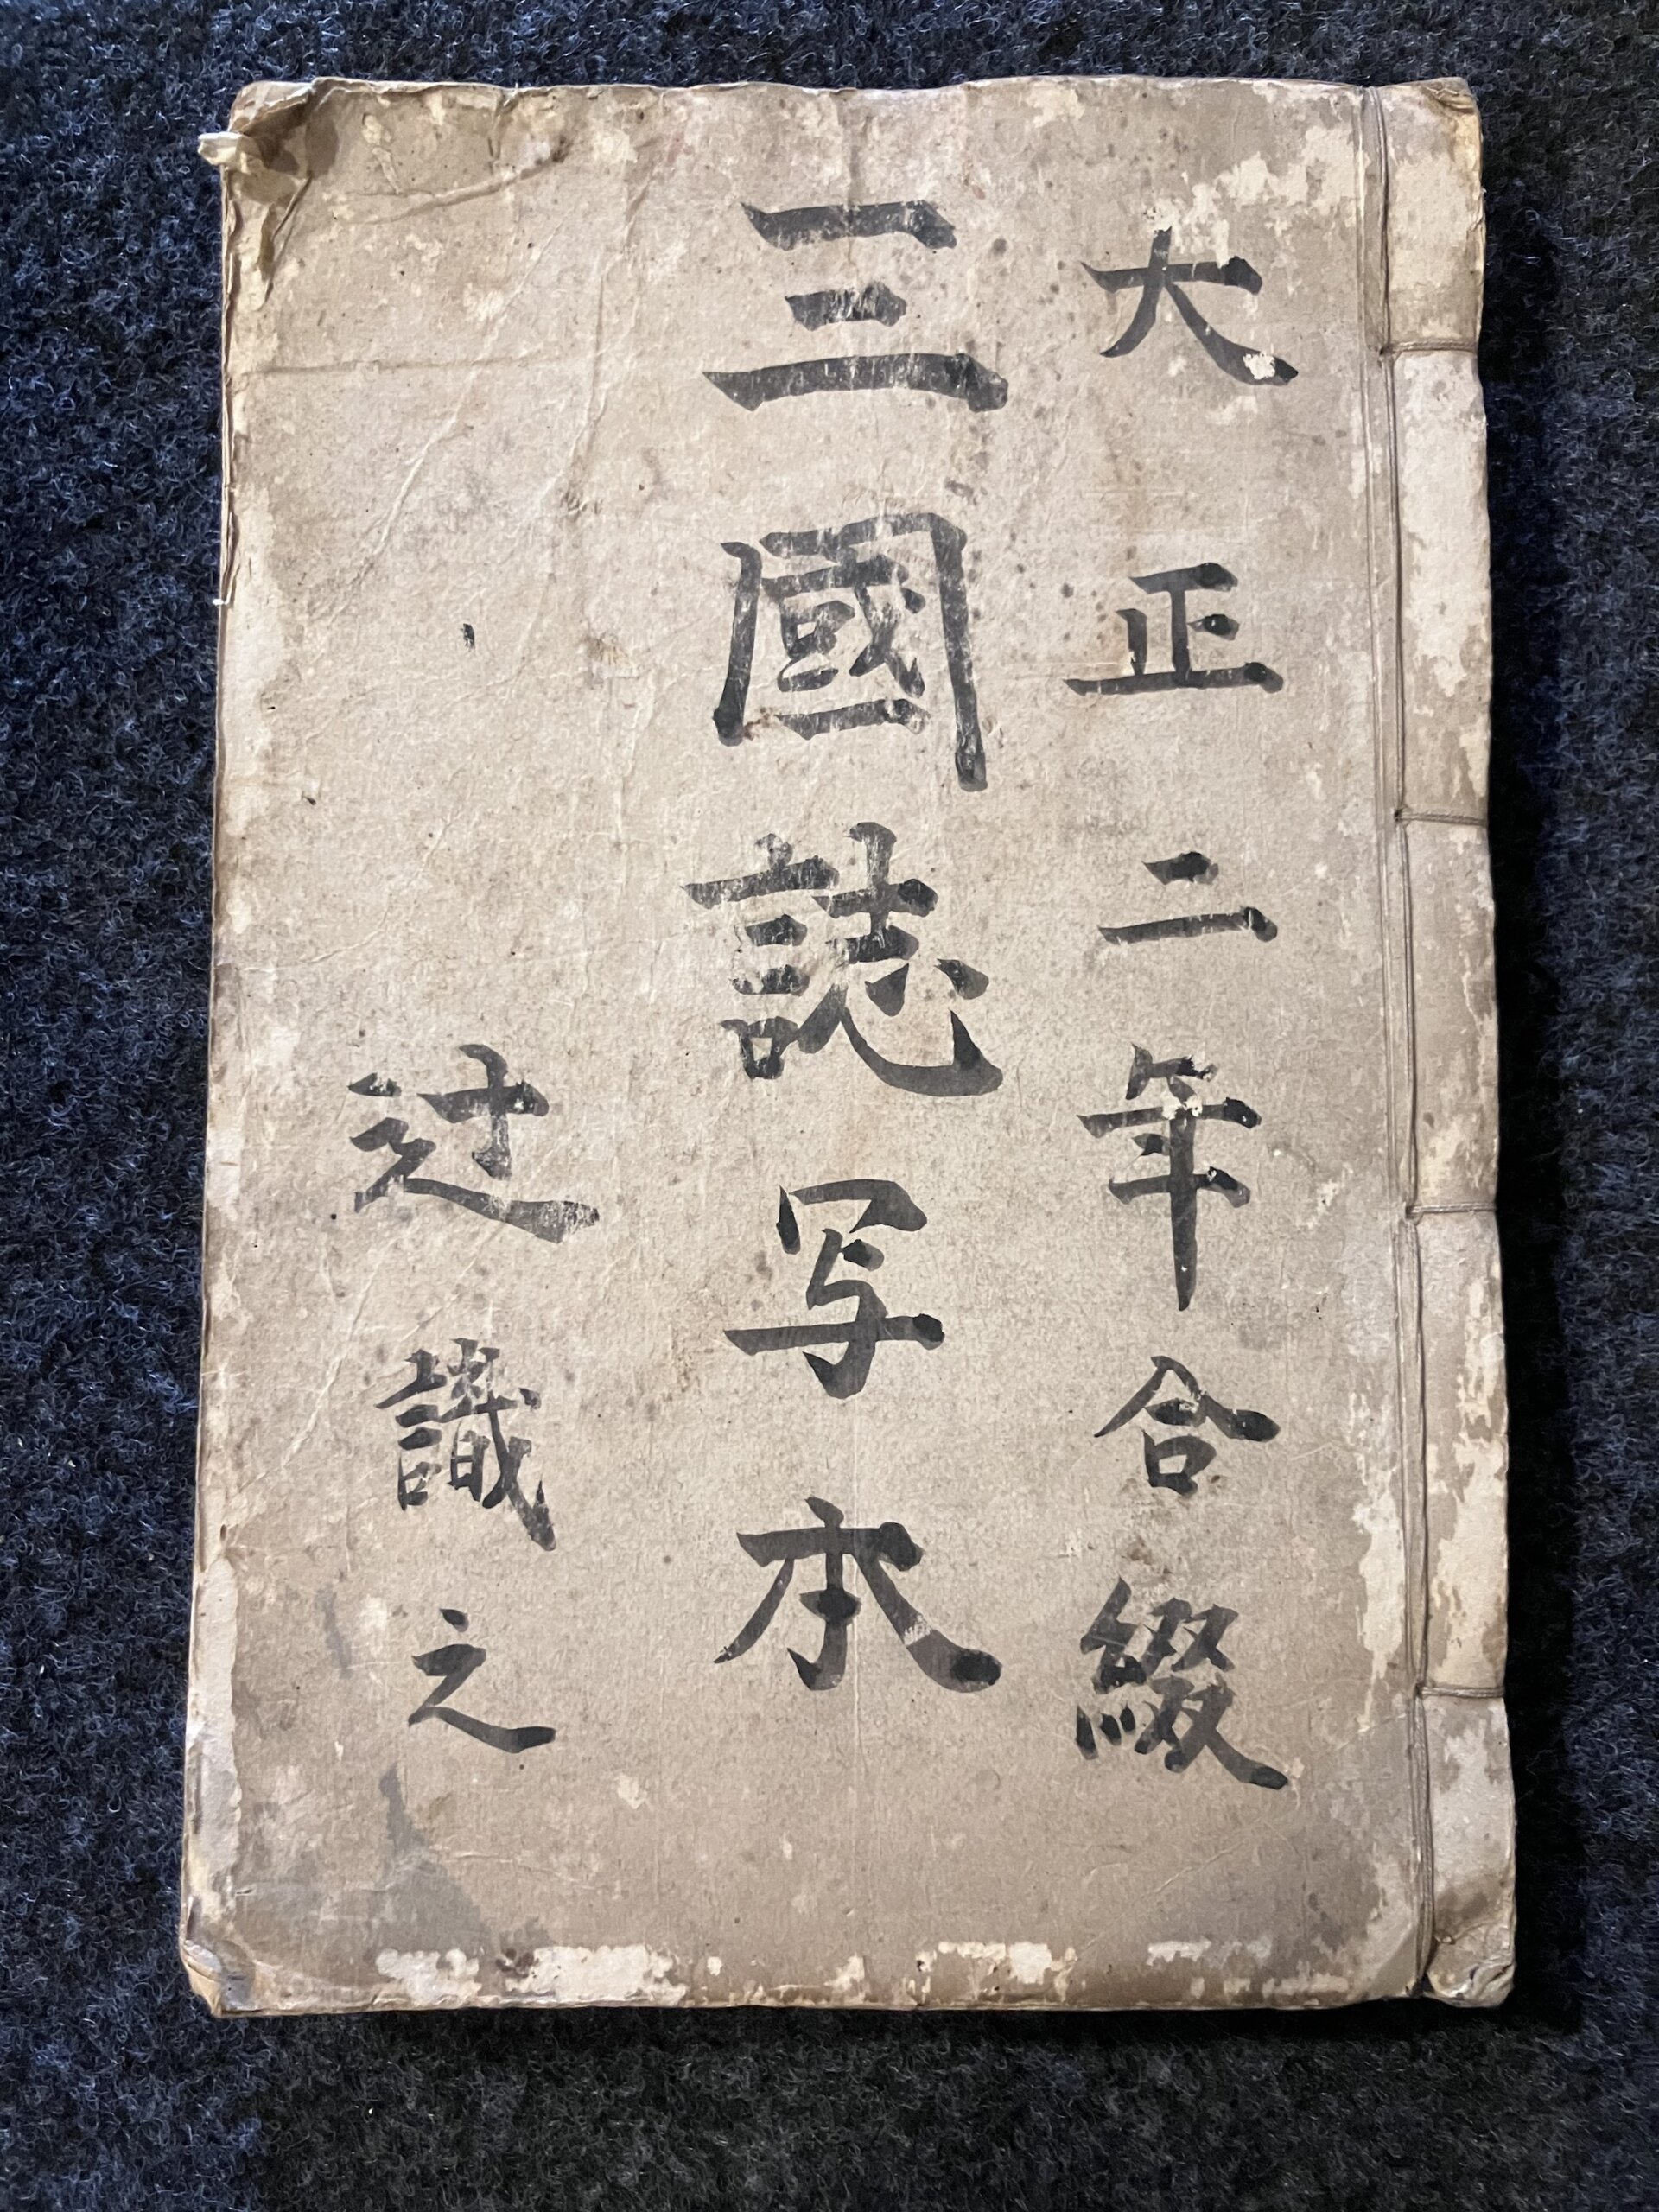 大正二年合綴
三國誌写本
辻識之